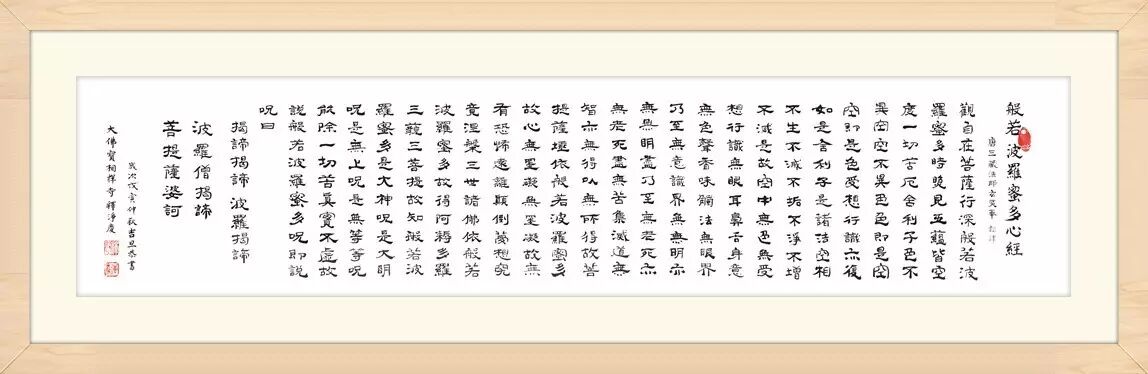 般若波羅蜜多心經
唐三藏法師玄奘奉 詔譯
觀自在菩薩行深般若波
羅蜜多時照見五蘊皆空
度一切苦厄舍利子色不
異空空不異色色即是空
空即是色受想行識亦復
如是舍利子是諸法空相
不生不滅不垢不淨不增
不減是故空中無色無受
想行識無眼耳鼻舌身意
無色聲香味觸法無眼界
乃至無意識界無無明亦
無無明盡乃至無老死亦
無老死盡無苦集滅道無
智亦無得以無所得故菩
提薩埵依般若波羅蜜多
故心無罣礙無罣礙故無
有恐怖遠離顛倒夢想究
竟涅槃三世諸佛依般若
波羅蜜多故得阿耨多羅
三藐三菩提故知般若波
羅蜜多是大神呪是大明
呪是無上呪是無等等呪
能除一切苦真實不虛故
說般若波羅蜜多呪即說
呪曰
揭諦揭諦波羅揭諦
波羅僧揭諦
菩提薩婆訶
歲次戊寅仲秋吉旦恭書
大佛寶相禪寺釋淨慶